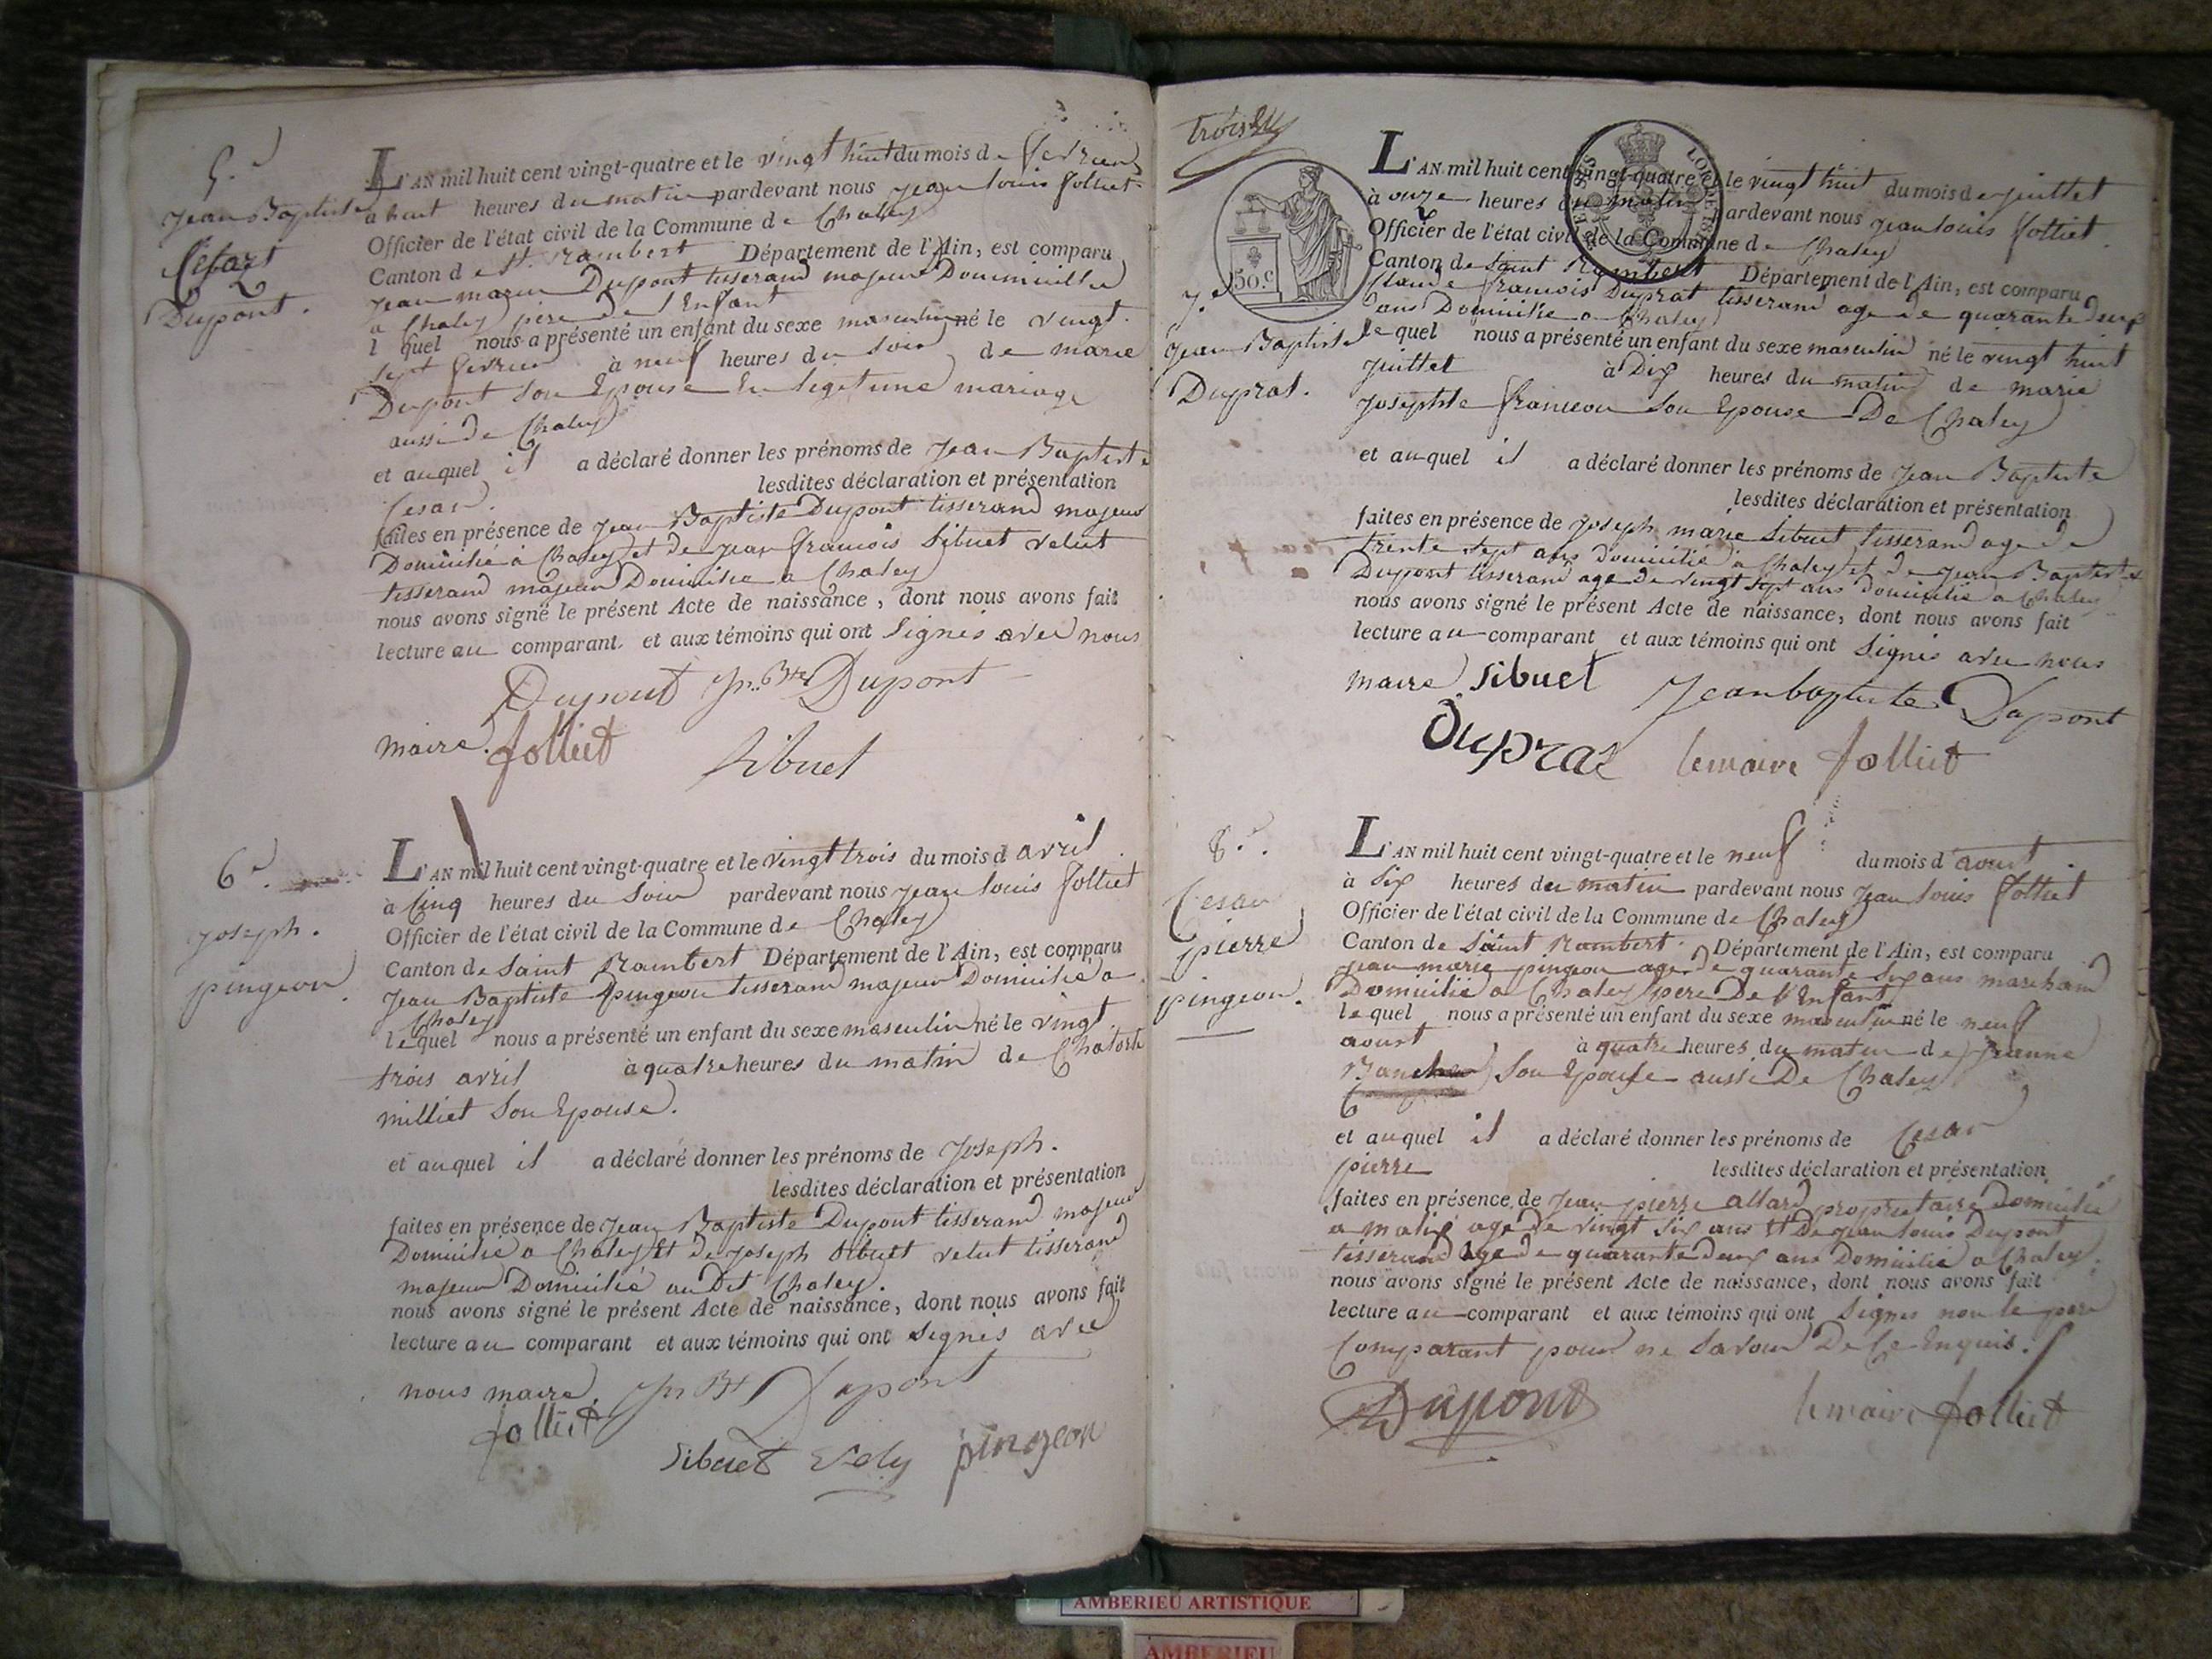 5.e
Jean Baptiste
Cesar
Dupont.
L'AN mil huit cent vingt-quatre et le vingt huit du mois de fevrier
à huit heures du matin pardevant nous Jean Louis folliet
Officier de l'état civil de la Commune de Chaley
Canton de St. Rambert Département de l'Ain, est comparu
Jean marie Dupont tisserand majeur Domicilié
a Chaley père de l'Enfant
l quel nous a présenté un enfant du sexe masculin né le vingt
sept fevrier à neuf heures du soir de marie
Dupont son Epouse En legitime mariage
aussi de Chaley
et auquel il a déclaré donner les prénoms de Jean Baptiste
Cesar. lesdites déclaration et présentation
faites en présence de Jean Baptiste Dupont tisserand majeur
Domicilié à Chaley et de Jean francois Sibuet velut
tisserand majeur Domicilié a Chaley
nous avons signé le présent Acte de naissance, dont nous avons fait
lecture au comparant et aux témoins qui ont Signés avec nous
Dupont Jn. Bte Dupont
maire. folliet Sibuet
6e.
Joseph.
pingeon
L'AN mil huit cent vingt-quatre et le vingt trois du mois d avril
à Cinq heures du Soir pardevant nous Jean Louis folliet
Officier de l'état civil de la Commune de Chaley
Canton de Saint Rambert Département de l'Ain, est comparu
Jean Baptiste pingeon tisserand majeur Domicilié a
Chaley
lequel nous a présenté un enfant du sexe masculin né le vingt
trois avril à quatre heures du matin de
milliet Son Epouse.
et auquel il a déclaré donner les prénoms de Joseph.
lesdites déclaration et présentation
faites en présence de Jean Baptiste Dupont tisserand majeur
Domicilié a Chaley Et de Joseph Sibuet velut tisserand
majeur Domicilié au Dit Chaley.
nous avons signé le présent Acte de naissance, dont nous avons fait
lecture au comparant et aux témoins qui ont Signés avec
nous maire. Jn Bt Dupont
folliet
Sibuet pingeon
50.c
7.e
Jean Baptiste
Duprat.
L'AN mil huit cent vingt-quatre et le vingt huit du mois de juillet
à onze heures du matin pardevant nous Jean louis folliet
Officier de l'état civil de la Commune de Chaley
Canton de Saint Rambert Département de l'Ain, est comparu
Claude francois Duprat tisserand age de quarante deux
ans Domicilié a Chaley
lequel nous a présenté un enfant du sexe masculin né le vingt huit
juillet à Dix heures du matin de marie
Josephte son Epouse De Chaley
et auquel il a déclaré donner les prénoms de Jean Baptiste
lesdites déclaration et présentation
faites en présence de Joseph marie Sibuet tisserand age de
trente sept ans Domicilié a Chaley et de Jean Baptiste
Dupont tisserand age de vingt sept ans domicilié a Chaley
nous avons signé le présent Acte de naissance, dont nous avons fait
lecture au comparant et aux témoins qui ont Signés avec nous
maire Sibuet Jean baptiste Dupont
Dupraz le maire folliet
8.e
Cesar
pierre
pingeon.
L'AN mil huit cent vingt-quatre et le neuf du mois d'aoust
à Six heures du matin pardevant nous Jean louis folliet
Officier de l'état civil de la Commune de Chaley
Canton de Saint Rambert. Département de l'Ain, est comparu
Jean marie pingeon age de quarante Six ans marchand
Domicilié a Chaley pere De l'Enfant
lequel nous a présenté un enfant du sexe masculin né le neuf
aoust à quatre heures du matin de
Son Epouse aussi De Chaley
et auquel il a déclaré donner les prénoms de Cesar
pierre lesdites déclaration et présentation
faites en présence de Jean pierre allard proprietaire Domicilié
a age de vingt Six ans Et De Jean louis Dupont
tisserand age de quarante deux ans Domicilié a Chaley.
nous avons signé le présent Acte de naissance, dont nous avons fait
lecture au comparant et aux témoins qui ont Signés non le pere
Comparant pour ne Savoir De Ce Enquis.
Dupont le maire folliet
AMBERIEU ARTISTIQUE
AMBERIEU